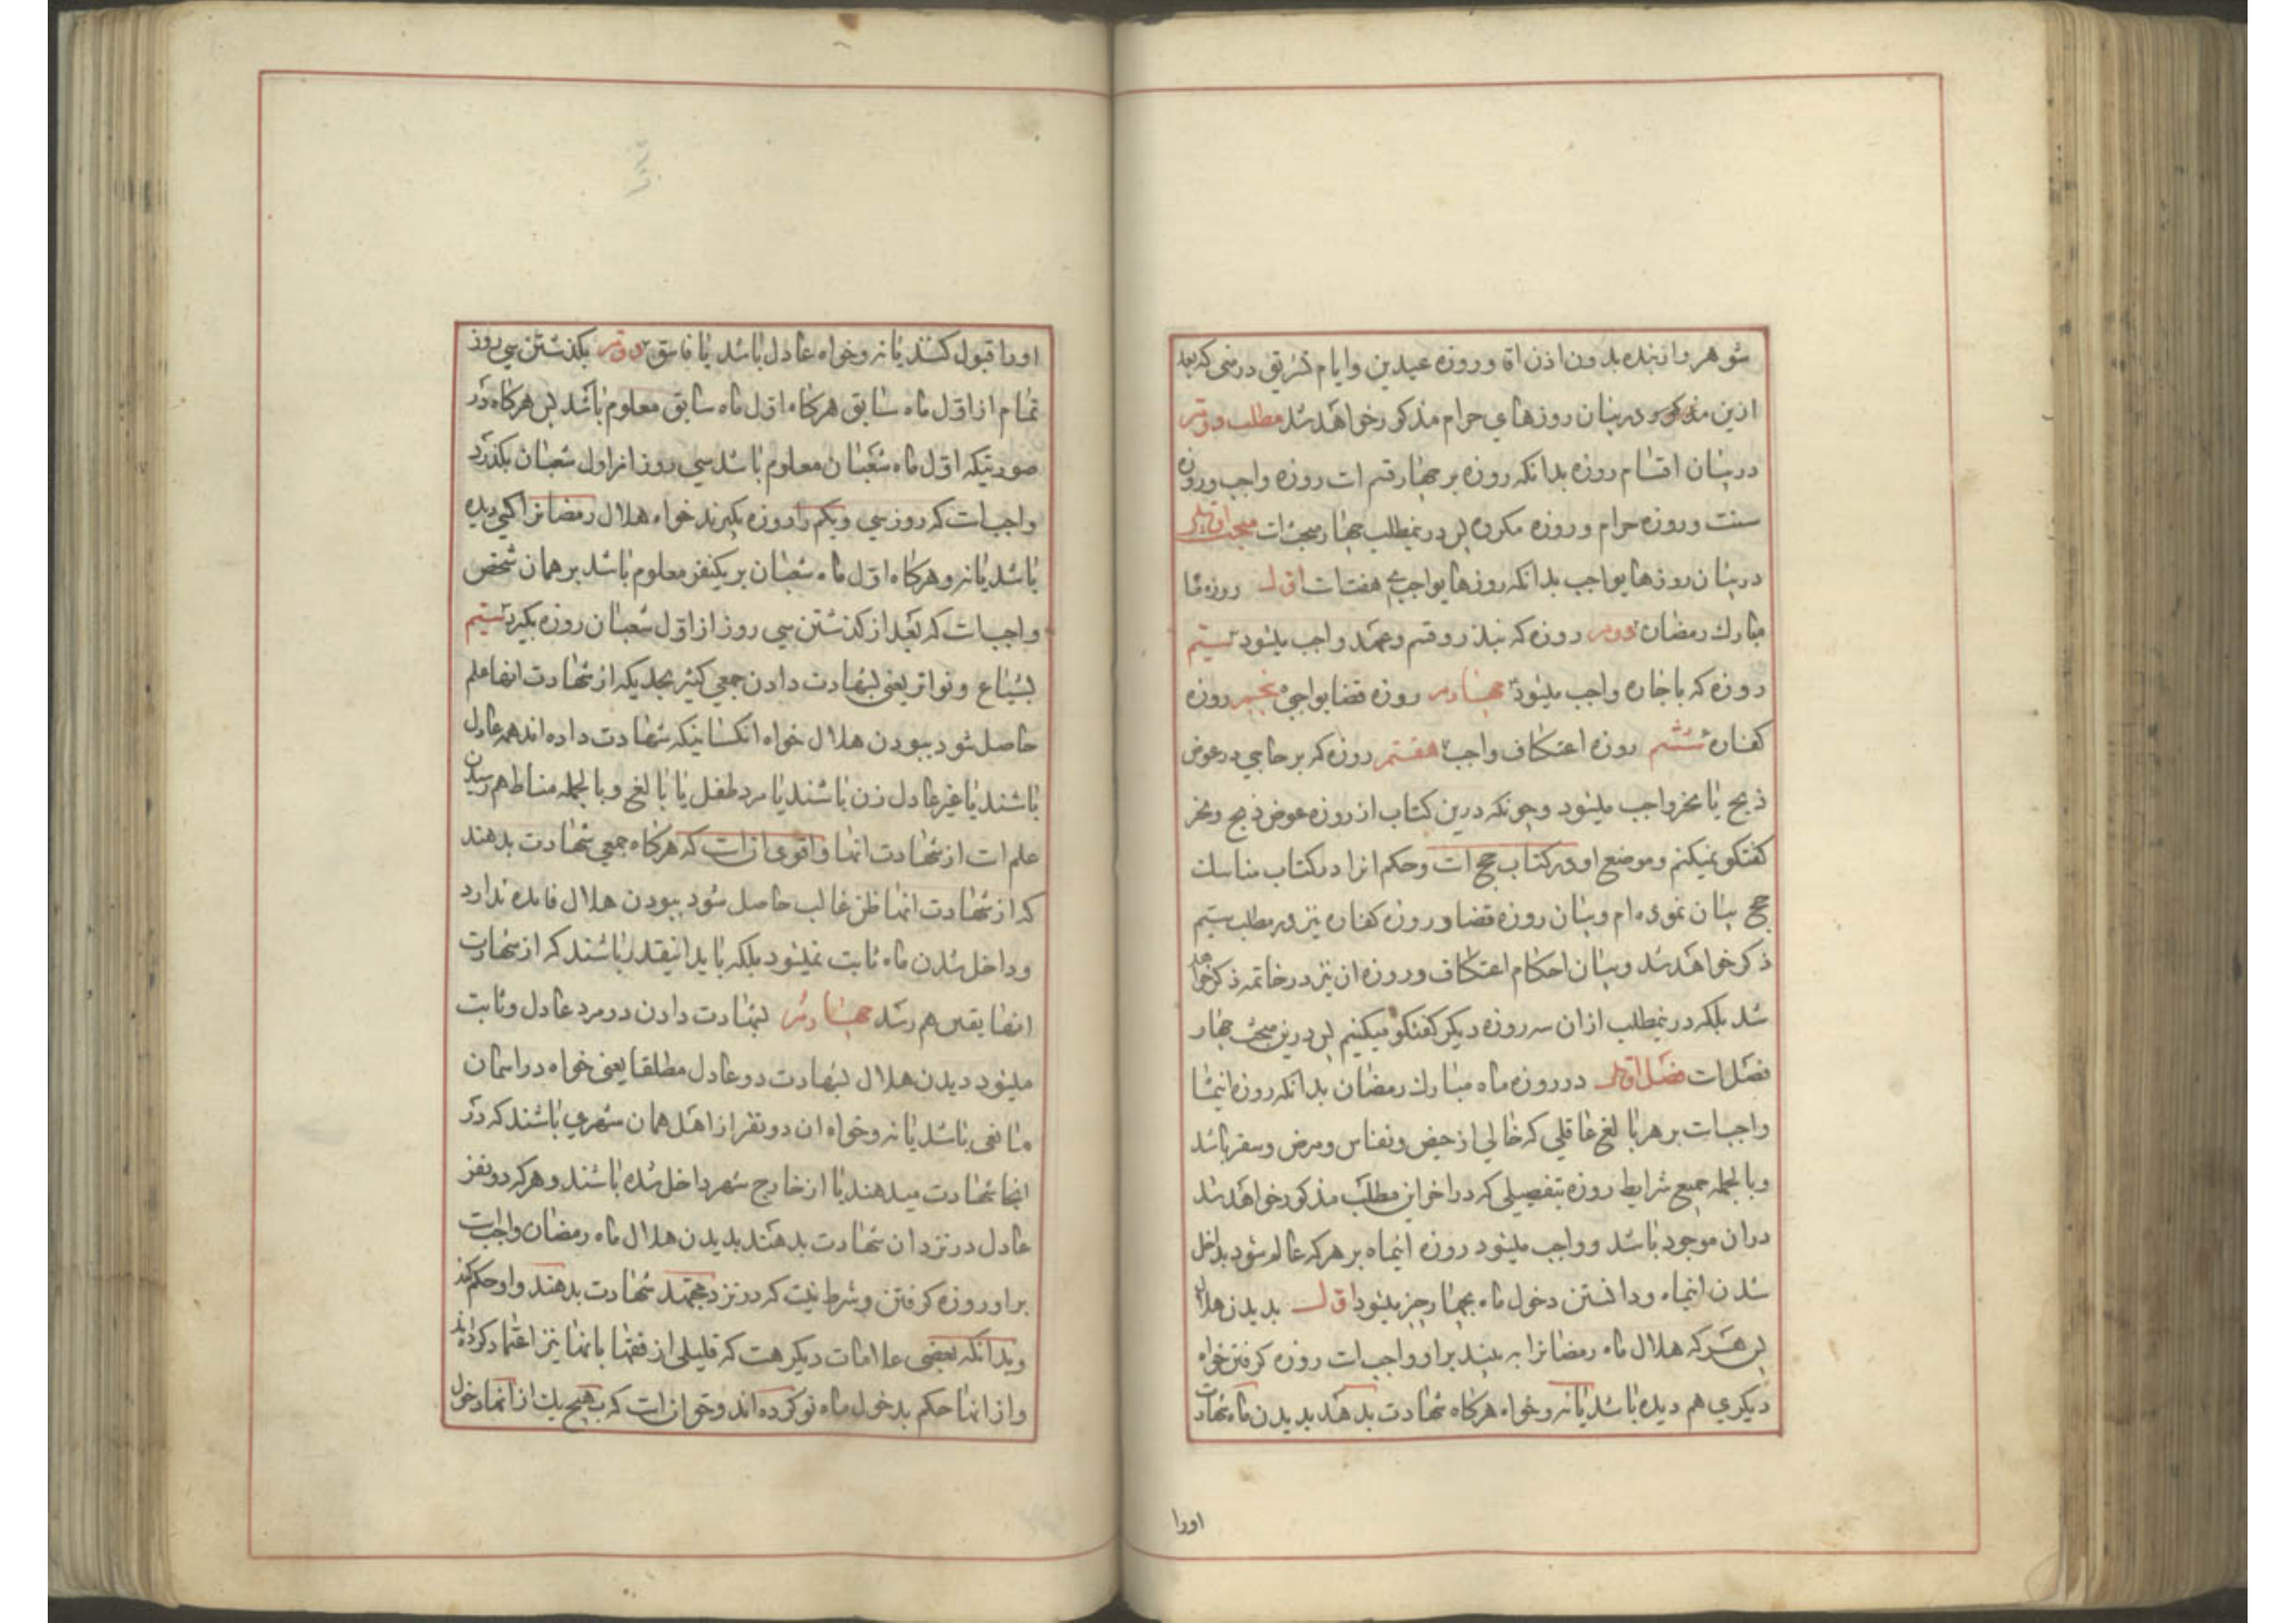 شوهر و از بنده بدون اذن اقا و روزه عیدین و ایام تشریق در منی که بعد
ازین مذکور و در بیان روزهای حرام مذکور خواهد شد مطلب دویم
در بیان اقسام روزه بدانکه روزه بر چهار قسم است روزه واجب و روزه
سنت و روزه حرام و روزه مکروه پس درینمطلب چهار مبحث است مبحث اول
در بیان روزهای واجب بدانکه روزهای واجبی هفت است اول روزه ماه
مبارک رمضان دویم روزه که بنذر و قسم و عهد واجب میشود سیم
روزه که باجاره واجب میشود چهارم روزه قضای واجبی پنجم روزه
کفاره ششم روزه اعتکاف واجب هفتم روزه که بر حاجی در عوض
ذبح یا نحر واجب میشود و چونکه درین کتاب از روزه عوض ذبح و نحر
گفتگو نمیکنم و موضع او در کتاب حج است و حکم انرا در کتاب مناسک
حج بیان نموده ام و بیان روزه قضا و روزه کفاره نیز در مطلب سیم
ذکر خواهد شد و بیان احکام اعتکاف و روزه ان نیز در خاتمه ذکر خواهد
شد بلکه درینمطلب از ان سه روزه دیگر گفتگو میکنیم پس درین مبحث چهار
فصل است فصل اول در روزه ماه مبارک رمضان بدانکه روزه اینماه
واجب است بر هر بالغ عاقلی که خالی از حیض و نفاس و مرض و سفر باشد
و بالجمله جمیع شرایط روزه بتفصیلی که در اخر این مطلب مذکور خواهد شد
در ان موجود باشد و واجب میشود روزه اینماه بر هر که عالم شود بداخل
شدن اینماه و دانستن دخول ماه بچهار چیز میشود اول بدیدن هلال
پس هر که هلال ماه رمضانرا به بیند بر او واجب است روزه گرفتن خواه
دیگری هم دیده باشد یا نه و خواه هرگاه شهادت بدهد بدیدن ماه شهادت
اورا
اورا قبول کنند یا نه و خواه عادل باشد یا فاسق دویم بگذشتن سی روز
تمام از اول ماه سابق هرگاه اول ماه سابق معلوم باشد پس هرگاه در
صورتیکه اول ماه شعبان معلوم باشد سی روز از اول شعبان بگذرد
واجب است که روز سی و یکم را روزه بگیرند خواه هلال رمضانرا کسی دیده
باشد یا نه و هرگاه اول ماه شعبان بر یکنفر معلوم باشد بر همان شخص
واجب است که بعد از گذشتن سی روز از اول شعبان روزه بگیرد سیم
بشیاع و تواتر یعنی بشهادت دادن جمعی کثیر بحدیکه از شهادت انها علم
حاصل شود ببودن هلال خواه انکسانیکه شهادت داده اند همه عادل
باشند یا غیر عادل زن باشند یا مرد طفل یا بالغ و بالجمله مناط هم رسیدن
علم است از شهادت انها و اقوی ان است که هرگاه جمعی شهادت بدهند
که از شهادت انها ظن غالب حاصل شود ببودن هلال فایده ندارد
و داخل شدن ماه ثابت نمیشود بلکه باید انیقدر باشند که از شهادت
انها یقین هم رسد چهارم بشهادت دادن دو مرد عادل و ثابت
میشود دیدن هلال بشهادت دو عادل مطلقا یعنی خواه در اسمان
مانعی باشد یا نه و خواه ان دو نفر از اهل همان شهری باشند که در
انجا شهادت میدهند یا از خارج شهر داخل شده باشند و هر که دو نفر
عادل در نزد ان شهادت بدهند بدیدن هلال ماه رمضان واجب است
بر او روزه گرفتن و شرط نیست که در نزد مجتهد شهادت بدهند و او حکم کند
و بدانکه بعضی علامات دیگر هست که قلیلی از فقها بانها نیز اعتماد کرده اند
و از انها حکم بدخول ماه نو کرده اند و حق ان است که بهیچ یک از انها دخول